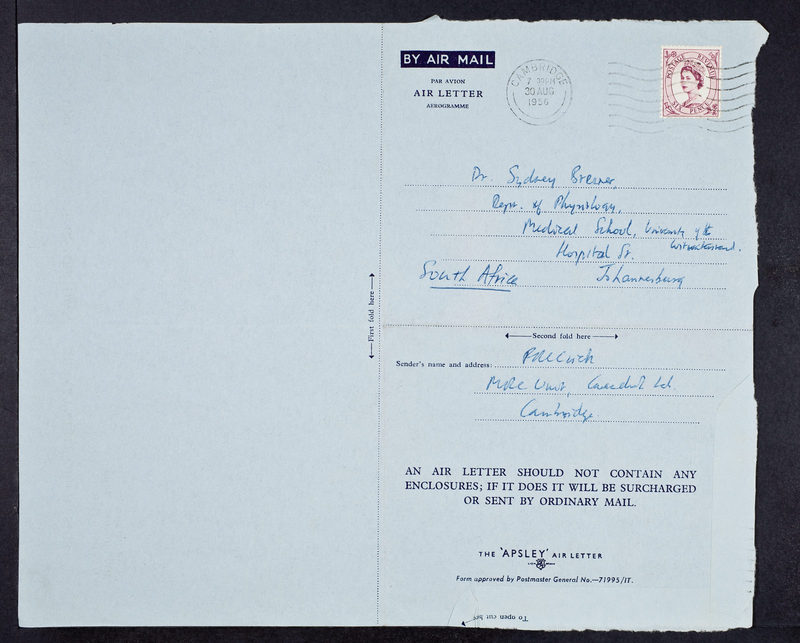 BY AIR MAIL
PAR AVION
AIR LETTER
AEROGRAMME
CAMBRIDGE
30 AUG
1956
POSTAGE REVENUE
SIX PENCE
Dr. Sydney Brenner,
Dept. of Physiology,
Medical School, University of the
Witwatersrand.
Hospital St.
South Africa Johannesburg
←First fold here→
←Second fold here→
Sender's name and address: FHC Crick
MRC Unit, Cavendish Lab.
Cambridge
AN AIR LETTER SHOULD NOT CONTAIN ANY
ENCLOSURES; IF IT DOES IT WILL BE SURCHARGED
OR SENT BY ORDINARY MAIL.
THE 'APSLEY' AIR LETTER
Form approved by Postmaster General No.—71995/1T.
To open cut here